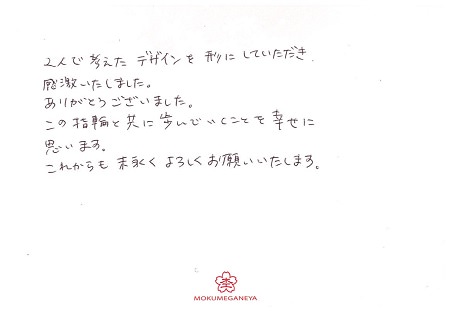 2人で考えたデザインを形にしていただき
感激いたしました。
ありがとうございました。
この指輪と共に歩んでいくことを幸せに
思います。
これからも末永くよろしくお願いいたします。
杢
MOKUMEGANEYA